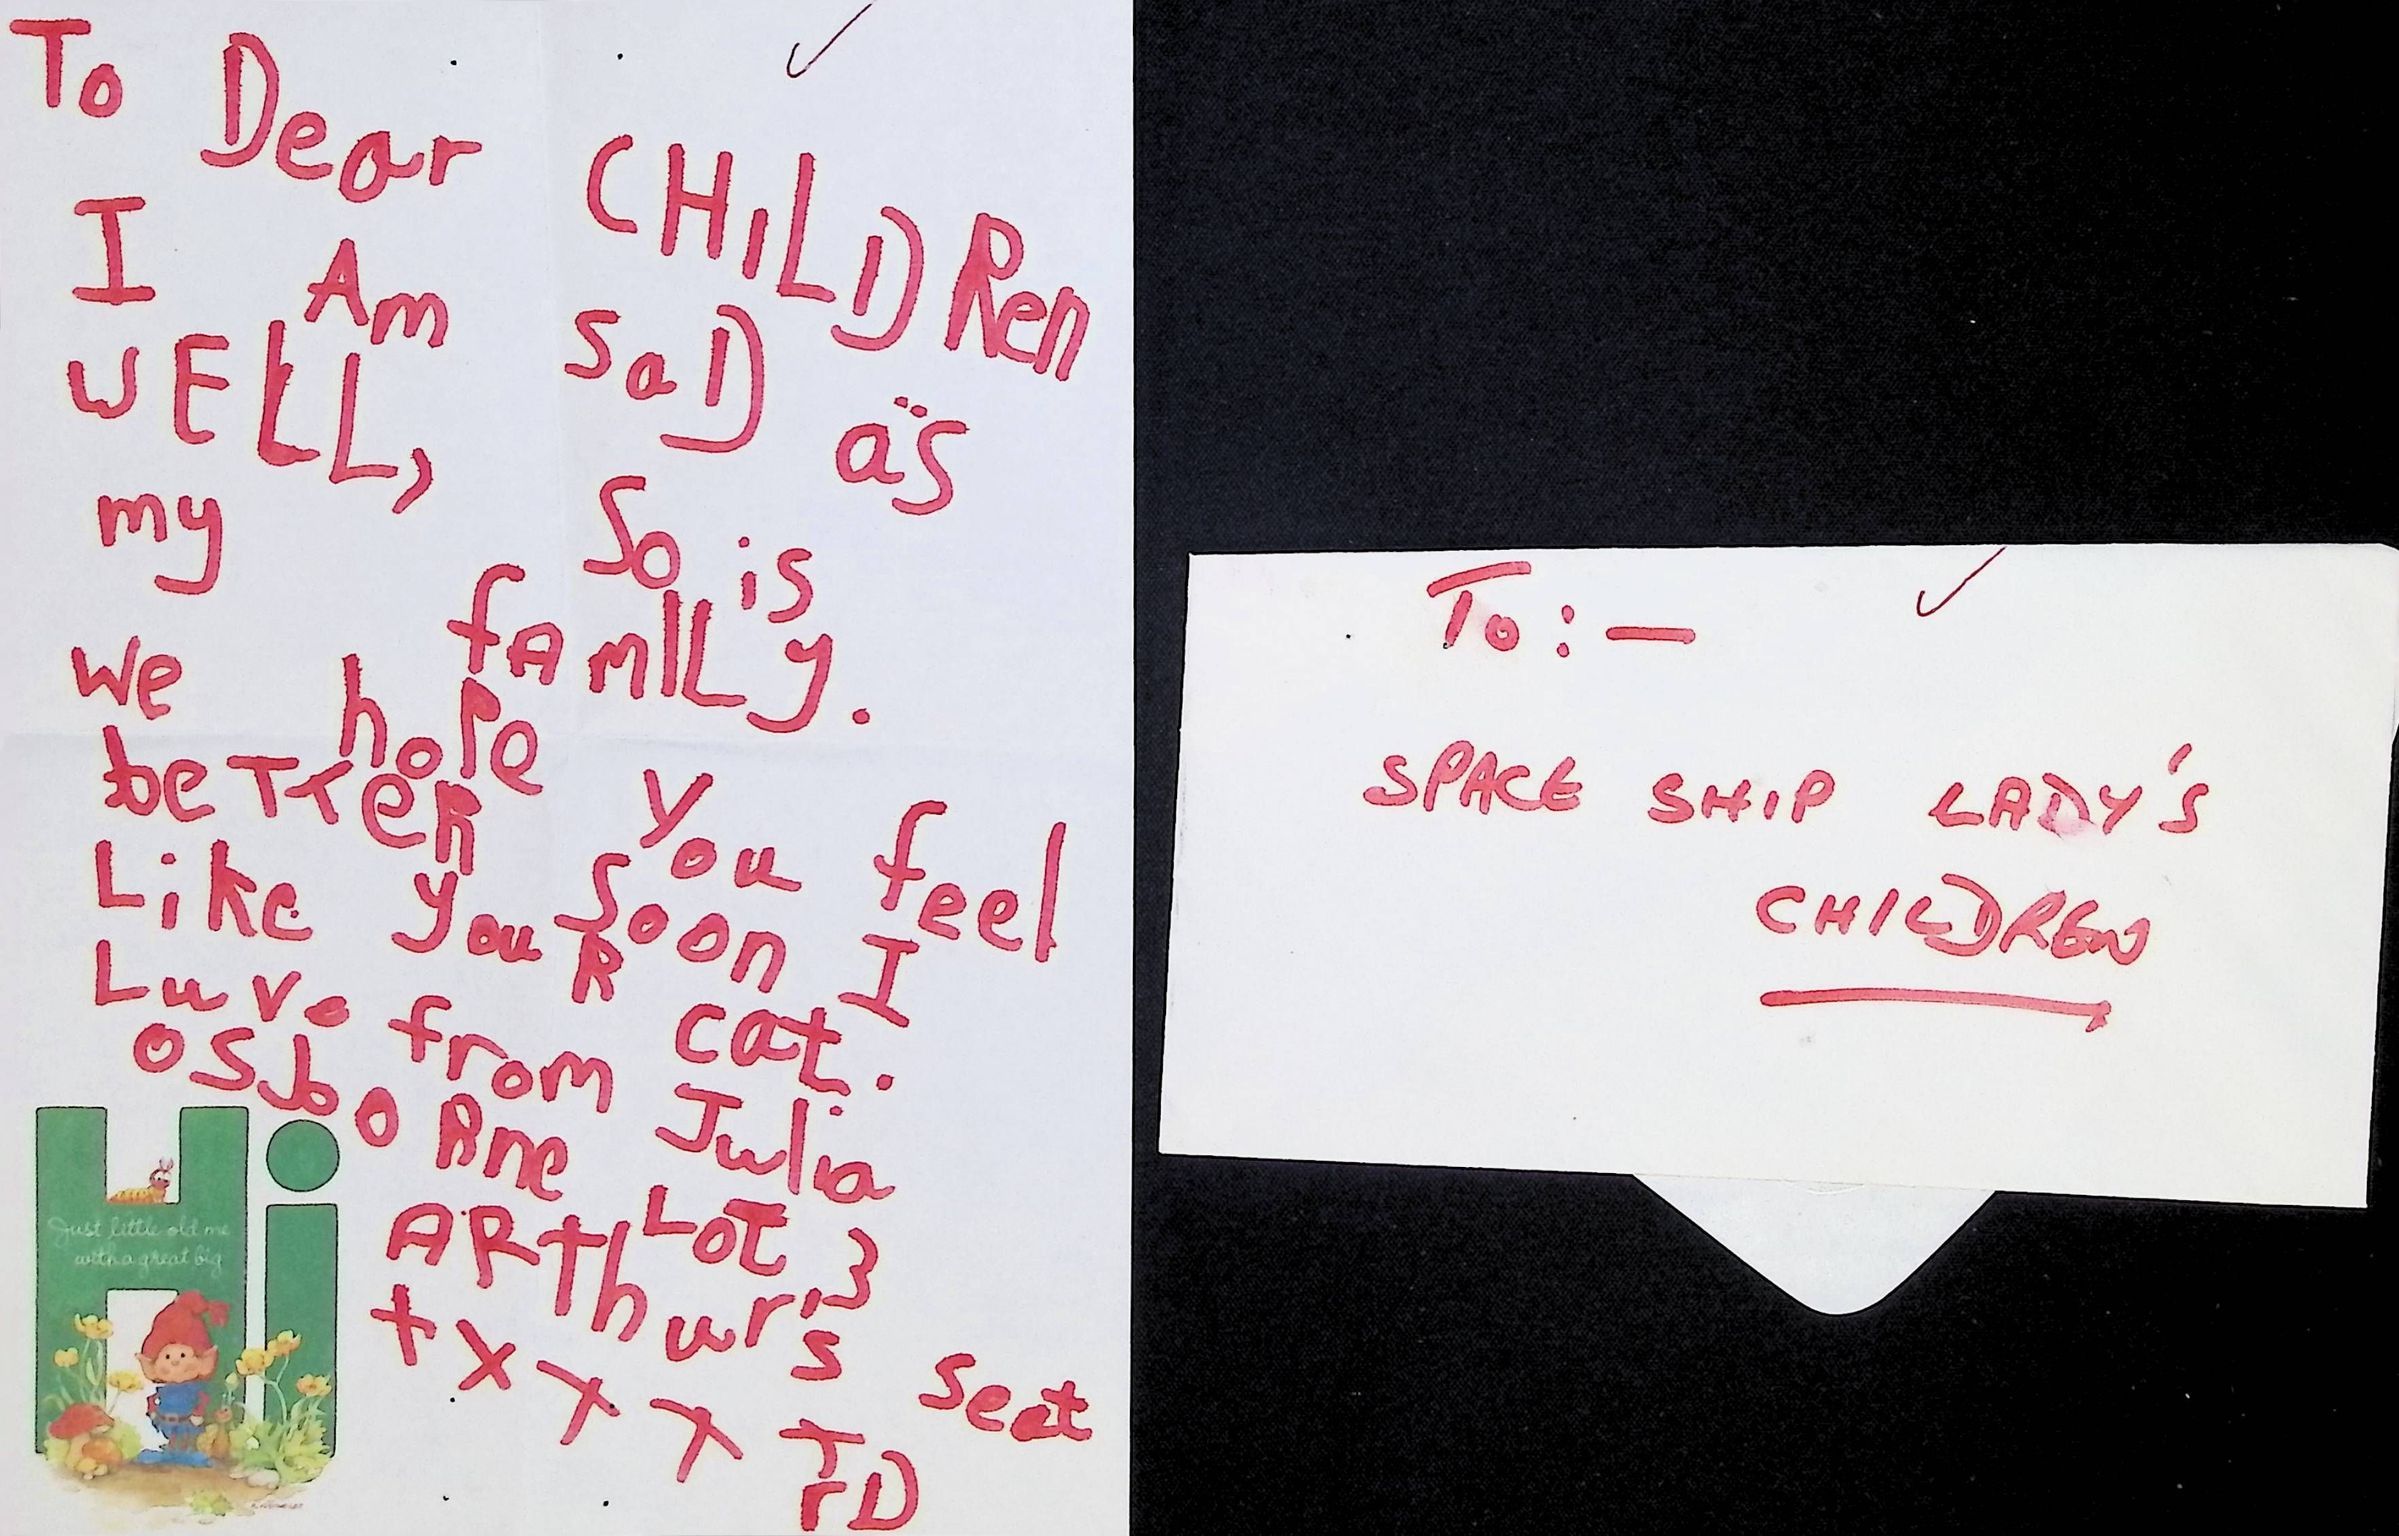 To Dear CHILDRen
I Am SaD as
WELL, So is
my fAmILy.
We hope you feel
beTTeR Soon I
Like youR cat.
Luve from Julia
OSboRne
LoT 3
ARthur's Seat
x x x x T rD
Hi
Just little old me
with a great big
To :—
SPACE SHIP LADY'S
CHILDREN